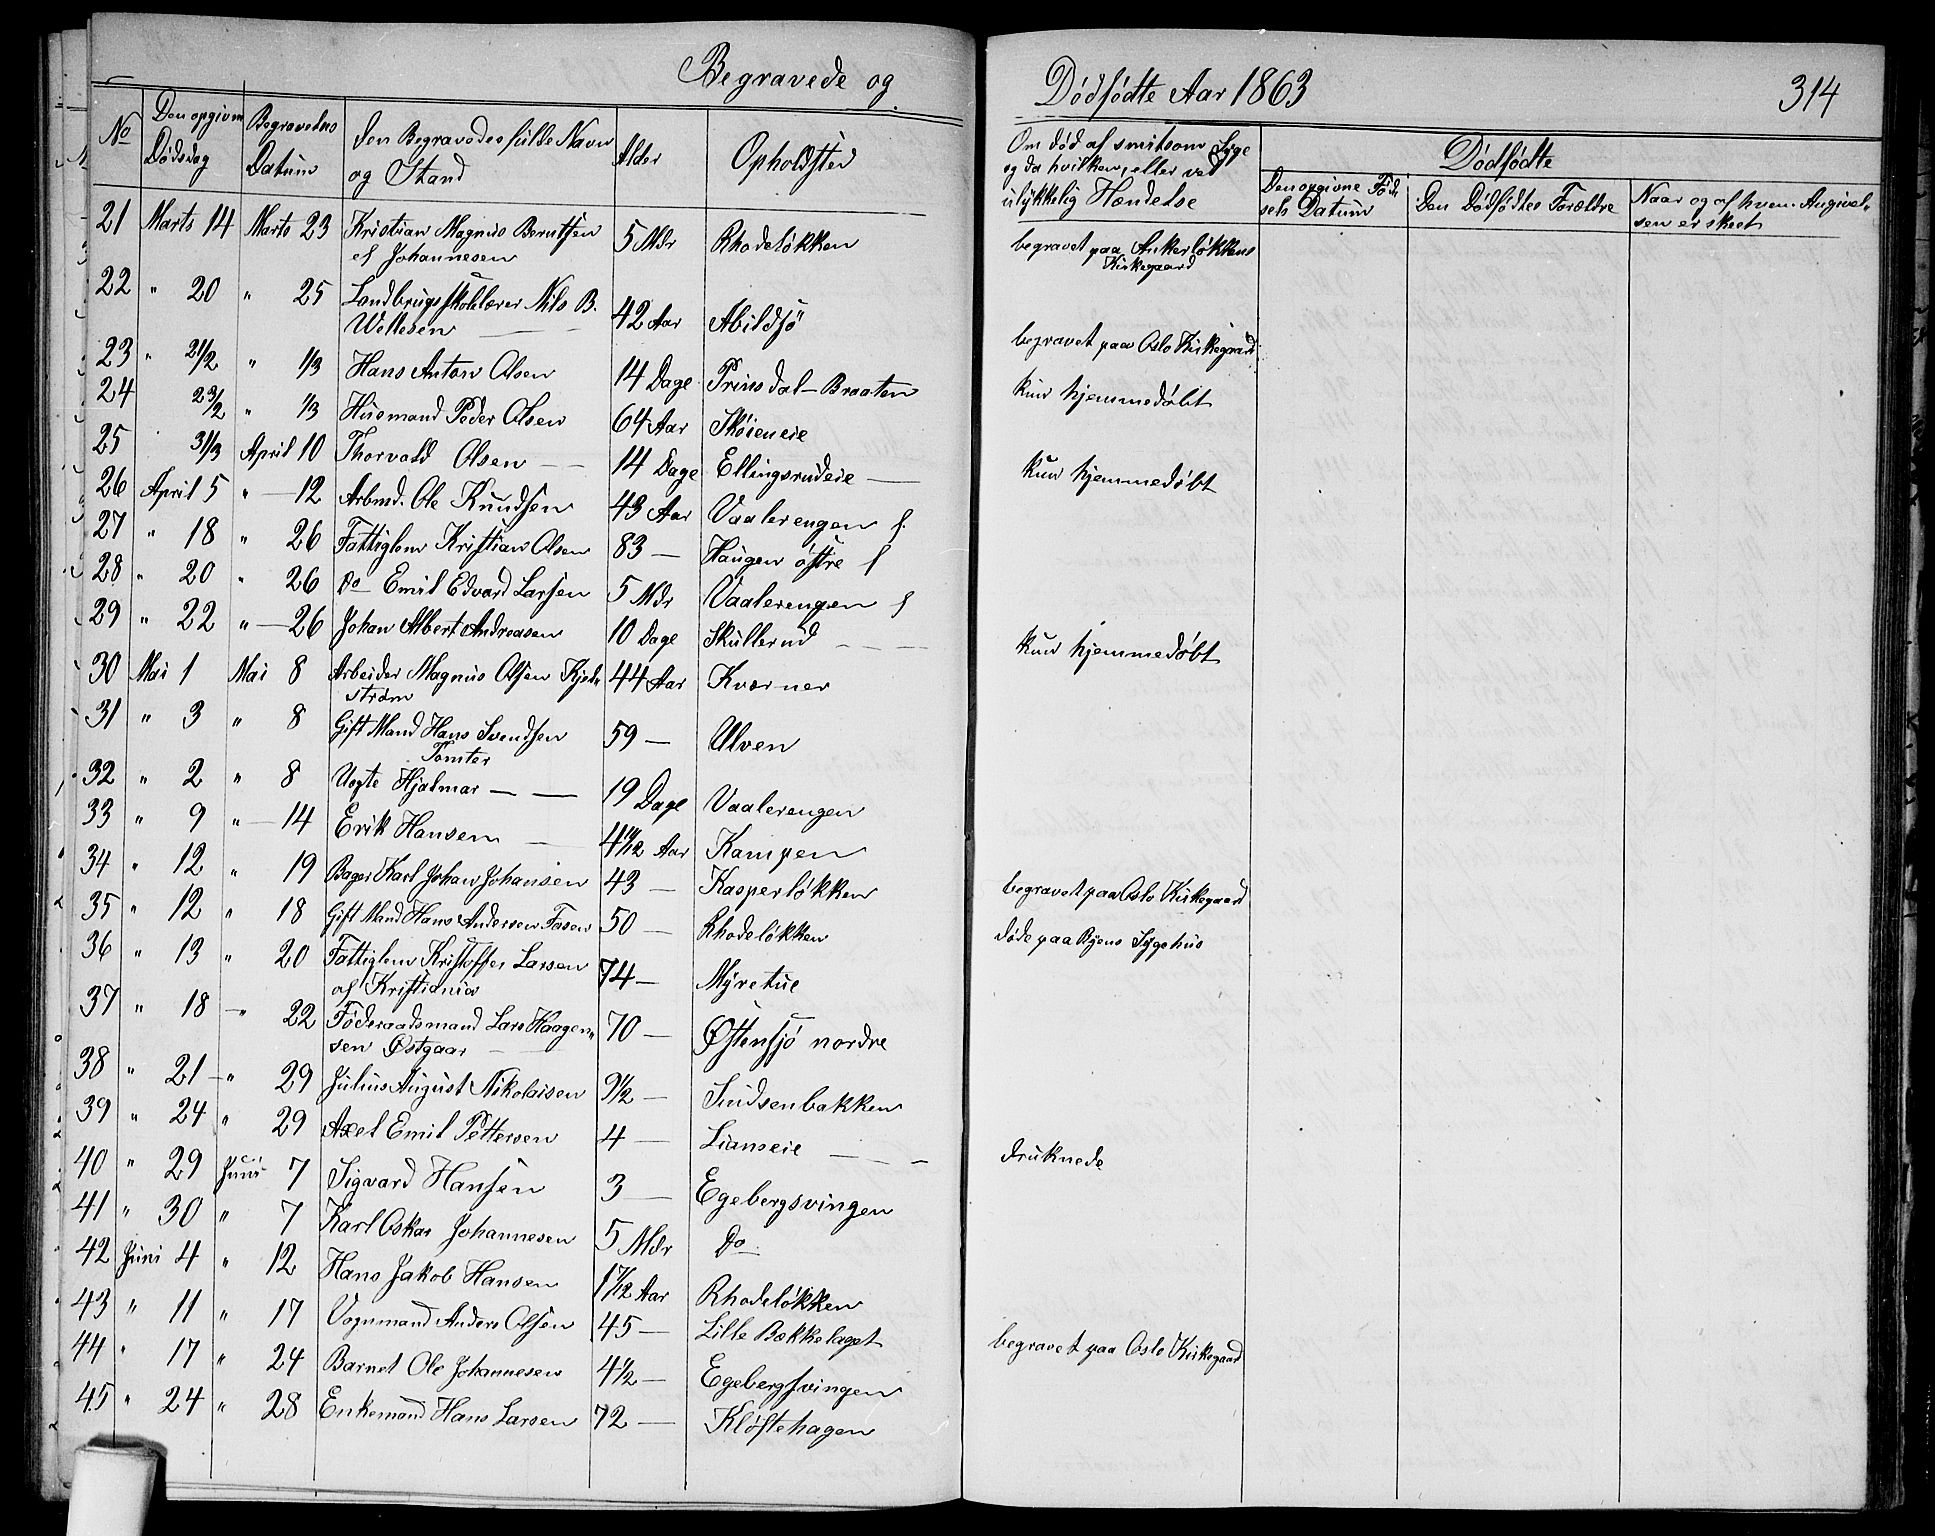 Begravede og
Dødfødte Aar 1863
314
No
Den opgivne Dødsdag
Begravedes Datum
Den Begravedes fulde Navn og Stand
Alder
Opholdsted
Om død af smitsom Syge
og da hvilken, eller ved
ulykkelig Hændelse
Dødfødte
Den opgivne Fød
sels Datum
Den Dødfødtes Forældre
Naar og af hvem Angivel„
sen er skeet
21 Marts 14 Marts 23 Kristian Magnus Berntsen 5 Mdr Rhodeløkken begravet paa Ankerløkkens
ef Johannesen Kirkegaard
22 " 20 " 25 Landbrugsskolelærer Nils B. 42 Aar Abildsö begravet paa Oslo Kirkegaard
Wellesen
23 " 21/2 " 1/3 Hans Anton Olsen 14 Dage Prinsdal-Braaten kun hjemmedøbt
24 23/2 " 1/3 Husmand Peder Olsen 64 Aar Skøieneie
25 31/3 April 10 Thorvald Olsen 14 Dage Ellingsrudeie kun hjemmedøbt
26 April 5 " 12 Arbmd. Ole Knudsen 43 Aar Vaalerengen f.
27 " 18 " 26 Fattiglem Kristian Olsen 83 — Haugen østre f
28 " 20 " 26 Do Emil Edvard Larsen 5 Mdr Vaalerengen f
29 " 22 " 26 Johan Albert Andreasen 10 Dage Skullerud kun hjemmedøbt
30 Mai 1 Mai 8 Arbeider Magnus Olsen 44 Aar Kværner
strøm
31 " 3 " 8 Gift Mand Hans Svendsen 59 — Ulven
Tomter
32 " 2 " 8 Uægte Hjalmar — — 19 Dage Vaalerengen
33 " 9 " 14 Erik Hansen 4 11/12 Aar Kampen
34 " 12 " 19 Bager Karl Johan Johansen 43 — Kasperløkken begravet paa Oslo Kirkegaard
35 " 12 " 18 Gift Mand Hans Andersen Fosen 50 — Rhodeløkken døde paa Ryens Sygehus
36 " 13 " 20 Fattiglem Kristoffer Larsen 74 — Myretue
af Kristiania
37 " 18 " 22 Føderaadsmand Lars Haagen„ 70 — Østensjö nordre
sen Østgaar
38 " 21 " 29 Julius August Nikolaisen 9 1/2 — Sindsenbakken
39 " 24 " 29 Axel Emil Pettersen 4 — Lianseie druknede
40 " 29 Juni 7 Sigvard Hansen 3 — Egebergsvingen
41 " 30 " 7 Karl Oskar Johannesen 5 Mdr Do
42 Juni 4 " 12 Hans Jakob Hansen 1 7/12 Aar Rhodeløkken
43 " 11 " 17 Vognmand Anders Olsen 45 — Lille Bækkelaget begravet paa Oslo Kirkegaard
44 " 17 " 24 Barnet Ole Johannesen 4 1/2 — Egebergsvingen
45 " 24 " 28 Enkemand Hans Larsen 72 — Kløftehagen